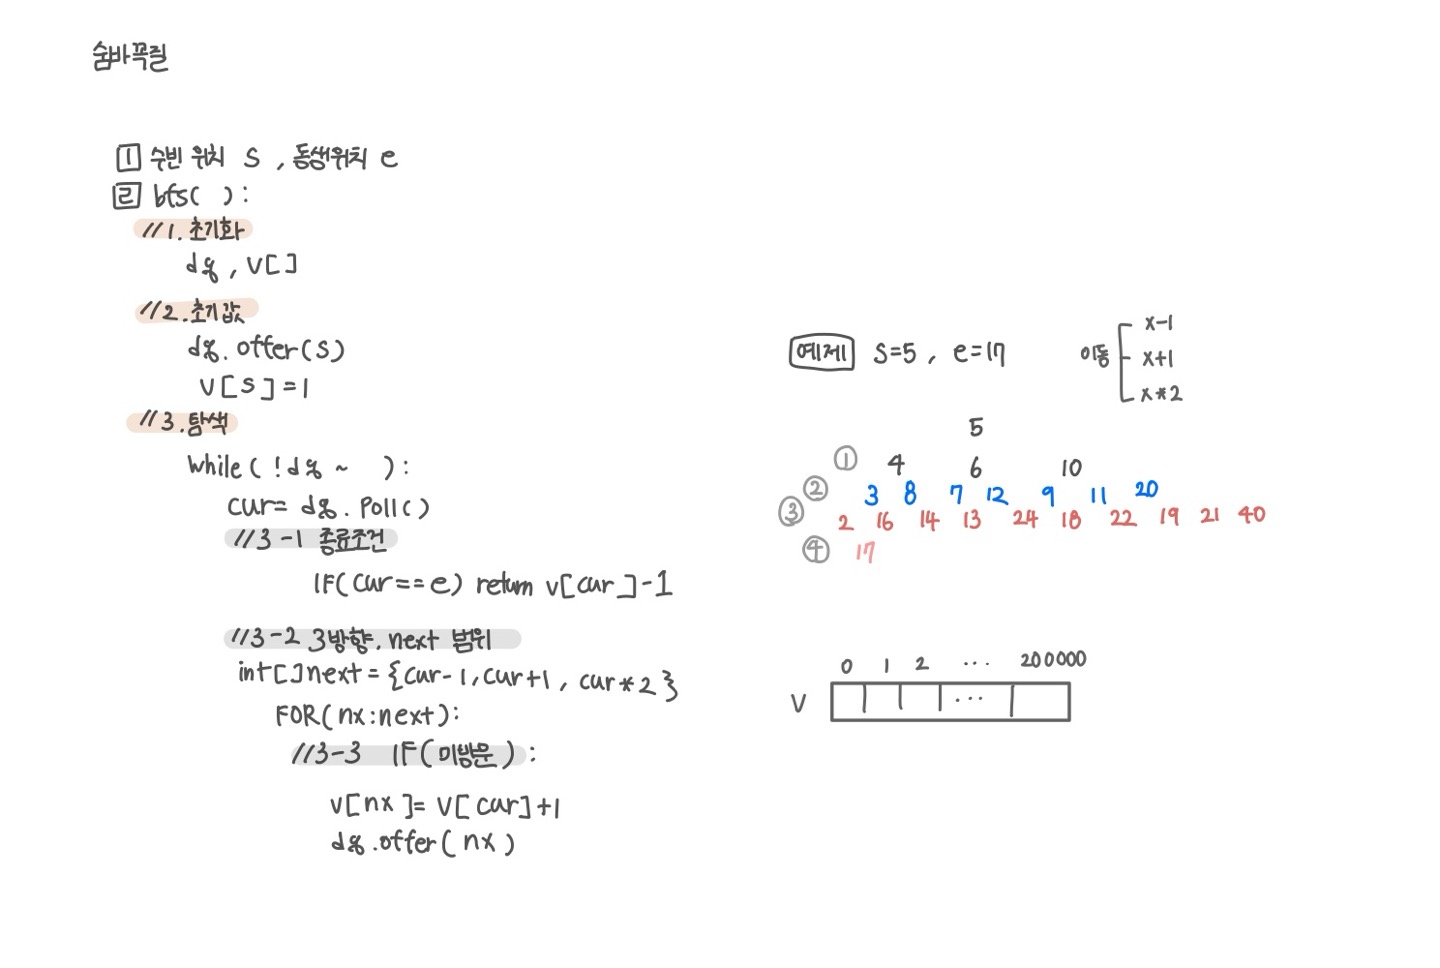 숨바꼭질
1 수빈 위치 S , 동생위치 e
2 bfs( ) :
//1.초기화
dq , V[ ]
//2.초기값
dq. offer(S)
V[S]=1
//3.탐색
while( !dq ~ ):
cur= dq. Poll()
//3-1 종료조건
IF(cur==e) return v[cur]-1
//3-2 3방향, next 범위
int[]next = {cur-1, cur+1, cur*2}
FOR(nx:next):
//3-3 IF(미방문):
v[nx]= V[cur]+1
dq.offer(nx)
예제 S=5 , e=17
이동 x-1
x+1
x*2
5
① 4 6 10
② 3 8 7 12 9 11 20
③ 2 16 14 13 24 18 22 19 21 40
④ 17
0 1 2 ... 200000
V ...